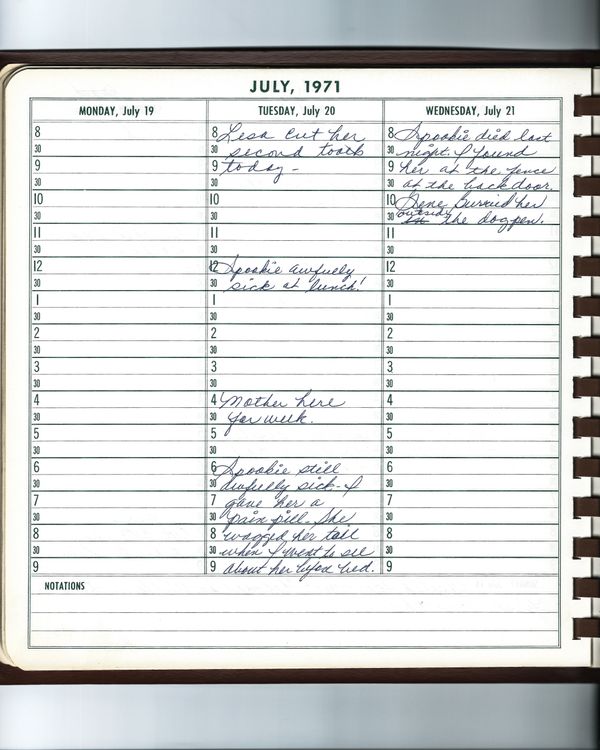 JULY, 1971
MONDAY, July 19
8
30
9
30
10
30
11
30
12
30
1
30
2
30
3
30
4
30
5
30
6
30
7
30
8
30
9
TUESDAY, July 20
8 Lesa cut her
30 second tooth
9 today-
30
10
30
11
30
12 Spookie awfuely
30 sick at lunch!
1
30
2
30
3
30
4 Mother here
30 for week.
5
30
6 Spookie still
30 awfully sick-I
7 gave her a
30 pain pill. She
8 wagged her tail
30 when I went to see
9 about her before bed.
WEDNESDAY, July 21
8 Spookie died last
30 night. I found
9 her at the fence
30 at the backdoor.
10 Gene Burried her
outside
30 in the dogpen.
11
30
12
30
1
30
2
30
3
30
4
30
5
30
6
30
7
30
8
30
9
NOTATIONS